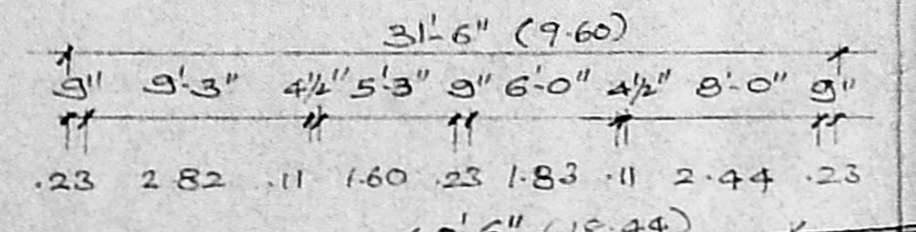 31'-6" (9.60)
9" 9'-3" 4½" 5'-3" 9" 6'-0" 4½" 8'-0" 9"
.23 2.82 .11 1.60 .23 1.83 .11 2.44 .23